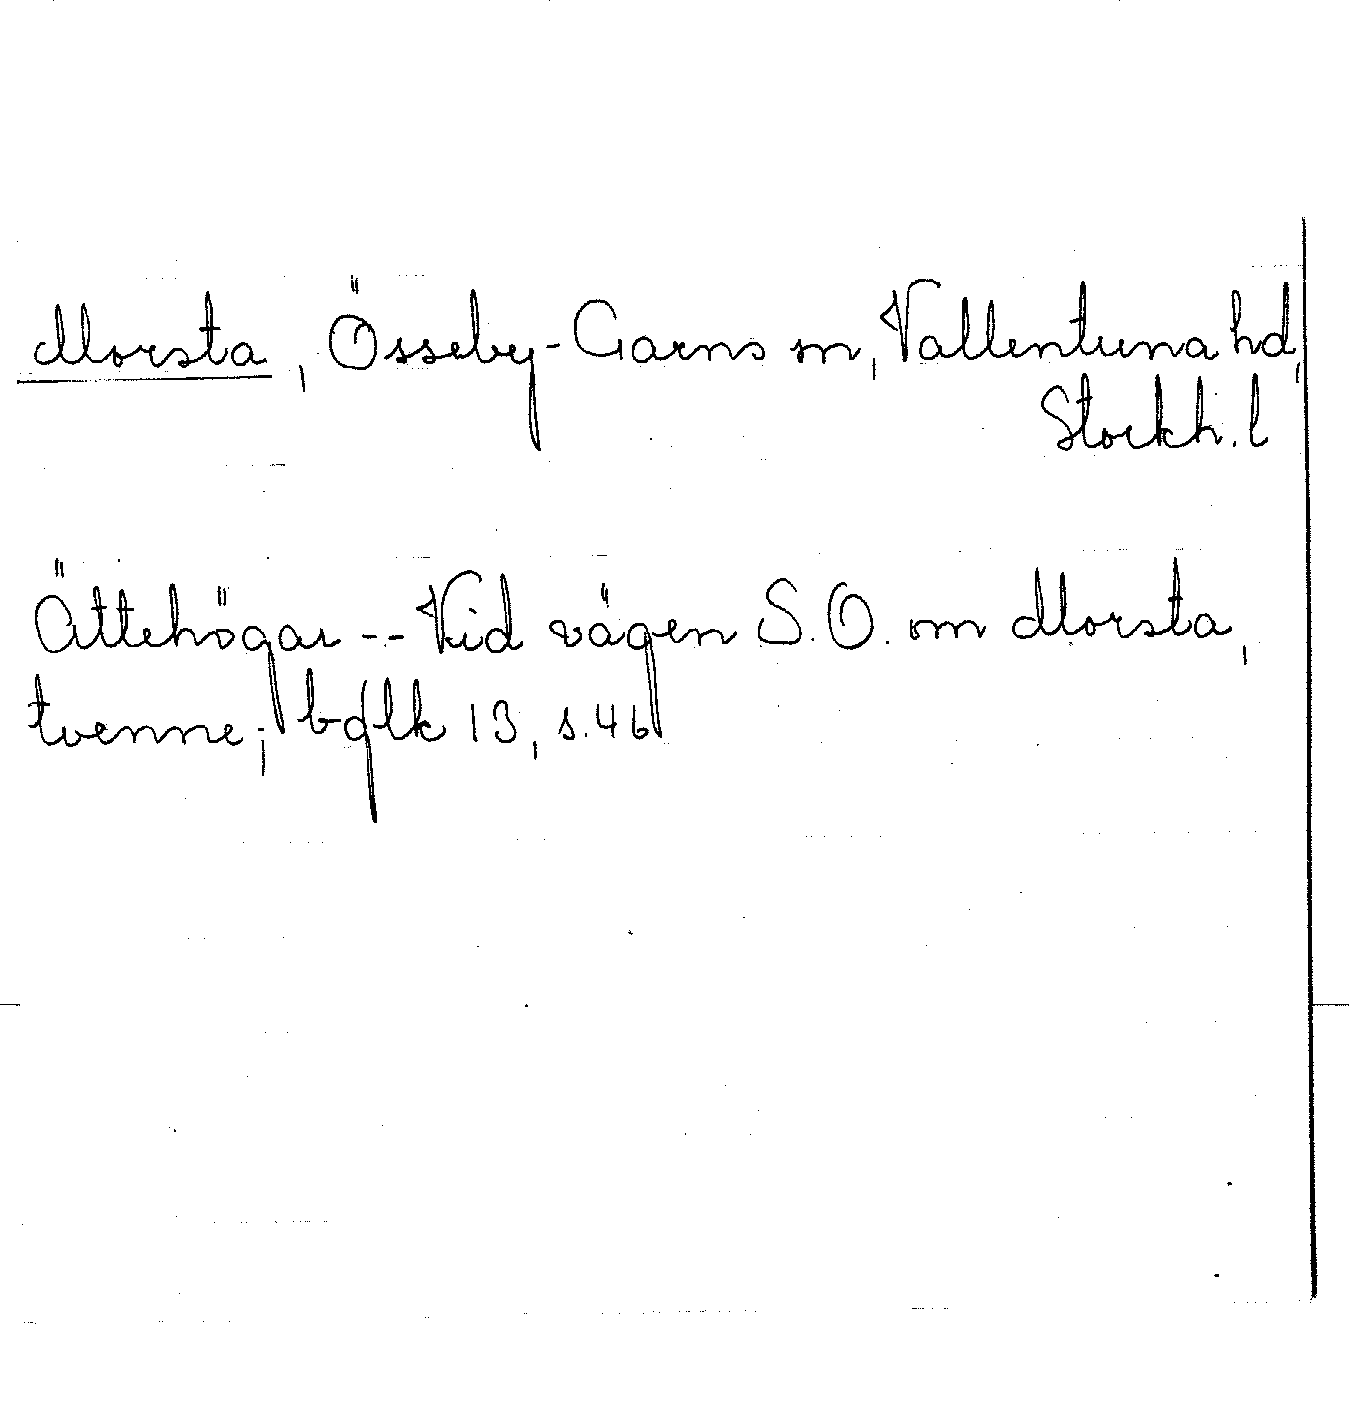 Morsta, Össeby-Garns sn, Vallentuna hd,
Stockh. l
Ättehögar -- Vid vägen S.O. om Morsta,
tvenne; bglk 13, s. 46